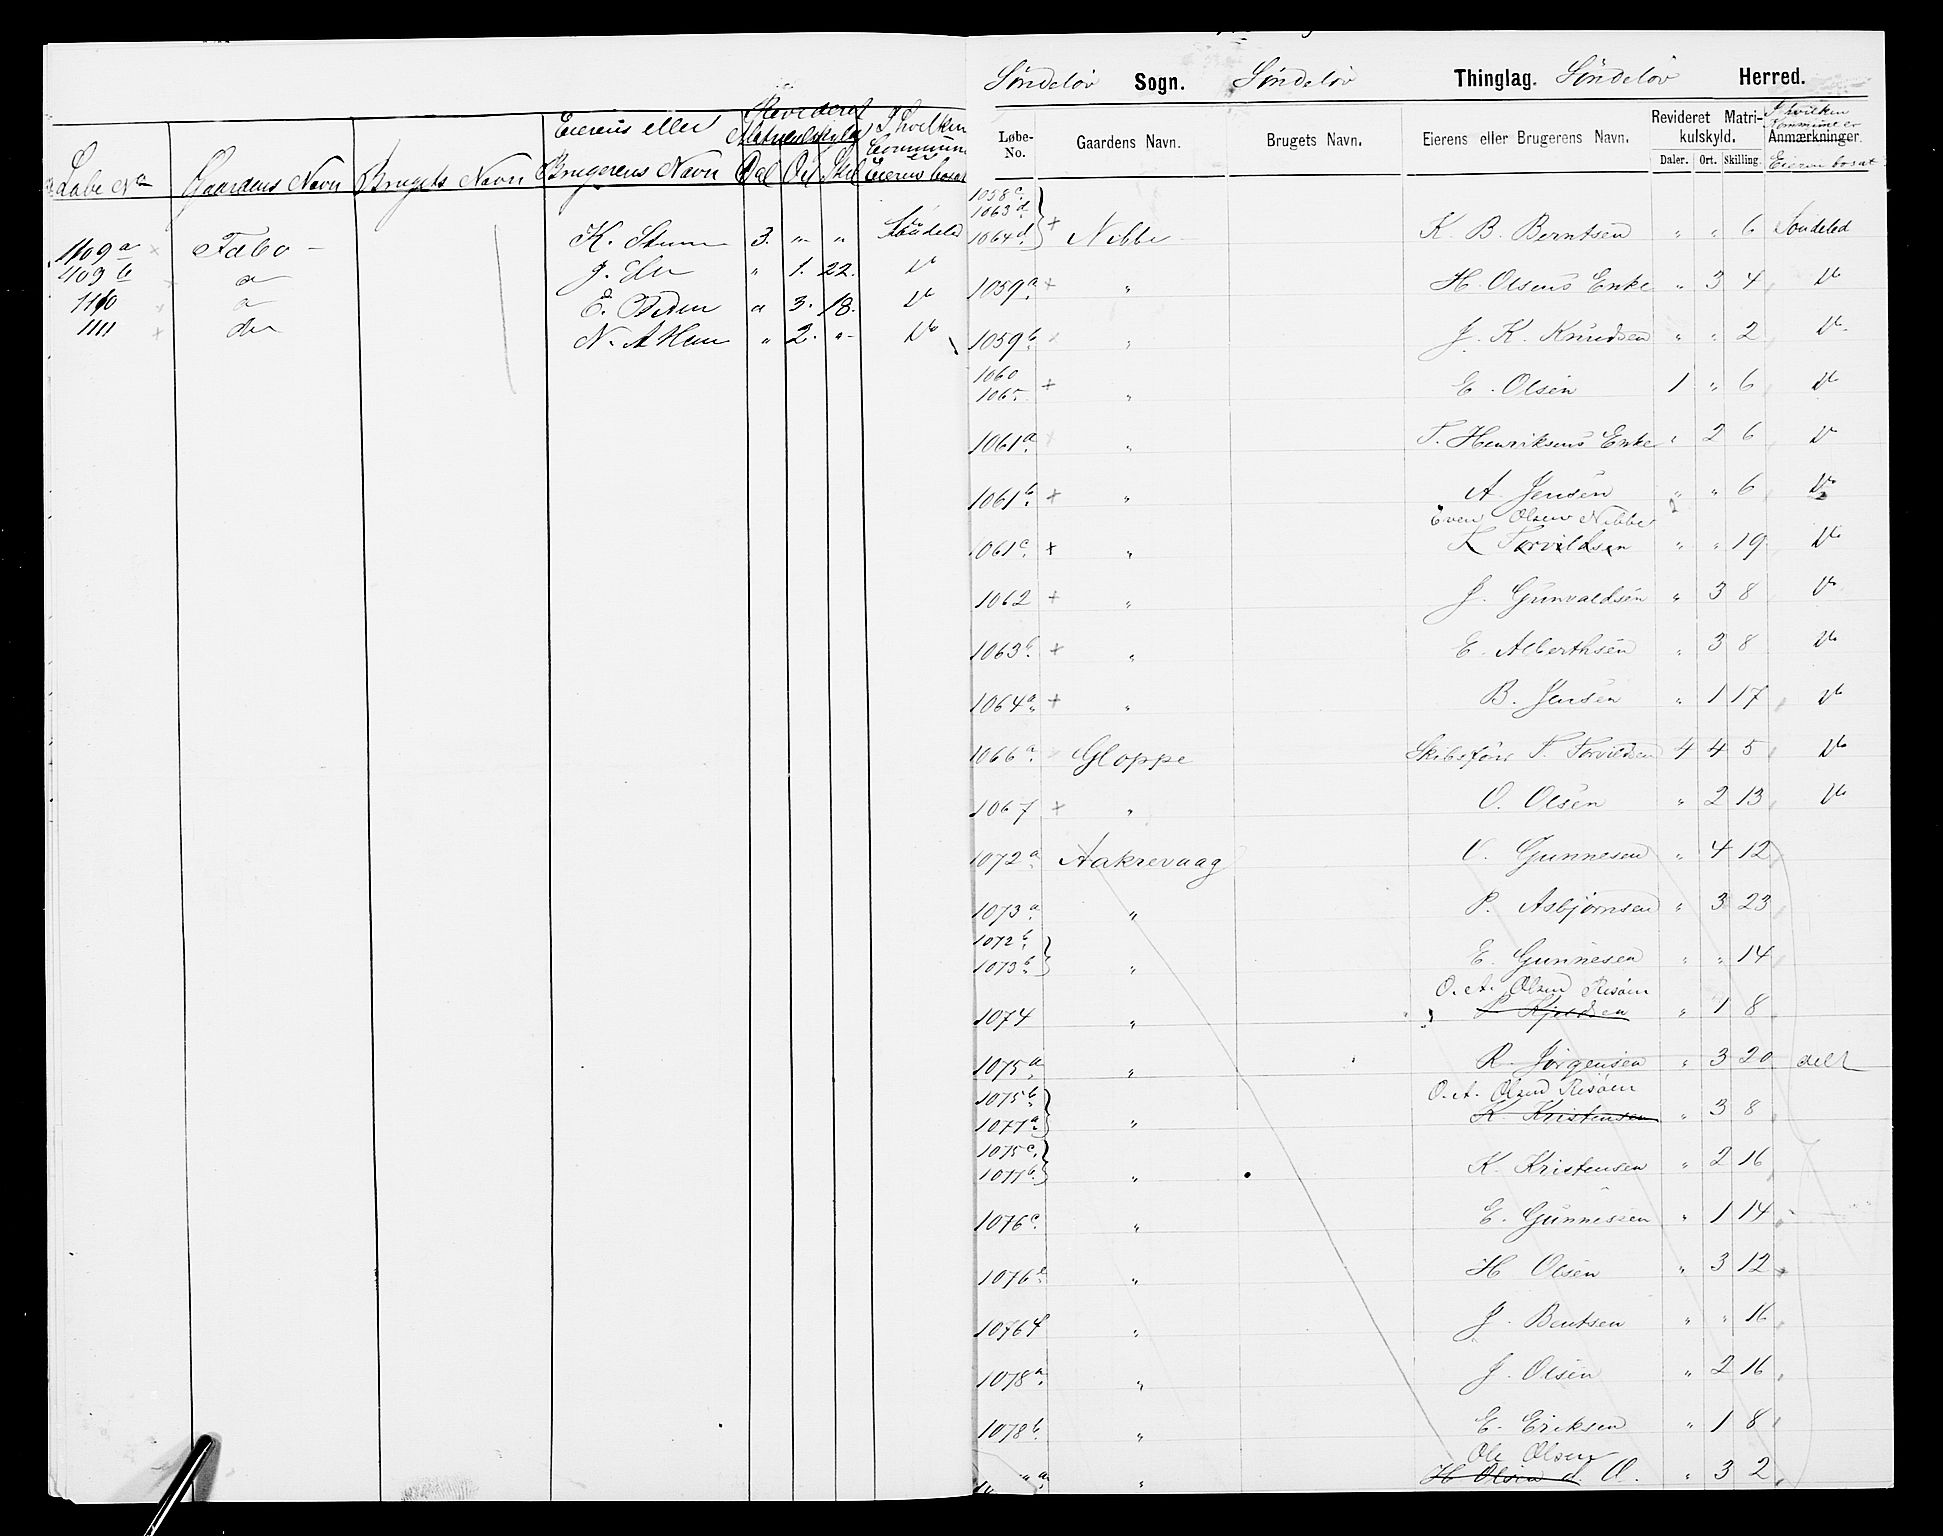 Eierens eller Revideret Matrulskyld I hvilken Commune er
Løbe No Gaardens Navn Brugets Navn Brugerens Navn Dal Ort Skil Eieren bosat
1109 a Fæbo K. 3. " " Søndeled
409 b J. " 1. 22. Do
1110 E. " 3. 18. Do
1111 do N. " 2. " Do
Søndeløv Sogn. Søndeløv Thinglag. Søndeløv Herred.
Løbe-No. Gaardens Navn. Brugets Navn. Eierens eller Brugerens Navn. Revideret Matrikulskyld. I hvilken Kommune er
Anmærkninger.
Daler. Ort. Skilling. Eieren bosat
1058 c.
1063 d.
1064 d. + Nibbe K. B. Berntsen " " 6 Søndeled
1059 a + " H. Olsens Enke " 3 4 Do
1059 b. " J. K. Knudsen " " 2 Do
1060
1065 + " E. Olsen 1 " 6 Do
1061 a. " T. Henriksens Enke " 2 6 Do
1061 b. + " A. Jensen " " 6 Do
Even Olsen Nibbe
1061 c. + " Torvildsen " " 19 Do
1062 + " J. Gunvaldsen " 3 8 Do
1063 b. + " E. Alberthsen " 3 8 Do
1064 a. + " B. Jensen " 1 17 Do
1066 a. Gloppe Skibsfører T. Torvildsen 4 4 5 Do
1067 + " O. Olsen " 2 13 Do
1072 a. Aakrevaag Gunnesen " 4 12
1073 a. " P. Asbjørnsen " 3 23
1072 b.
1073 b. " E. Gunnesen " " 14
O. A. Olsen Risøen
1074 " Kjeldsen " 1 8
1075 a. " R. Jørgensen " 3 20 delt
1075 b. O. A. Olsen Risøen
1077 a. " K. Kristensen " 3 8
1075 c.
1077 b. " K. Kristensen " 2 16
1076 c. " E. Gunnesen " 1 14
1076 e. " H Olsen " 3 12
1076 f " J. Bentsen " " 16
1078 a. " J. Olsen " 2 16
1078 b. " E. Eriksen " 1 8
Ole Olsen
" a. " H Olsen d. O. " 3 2